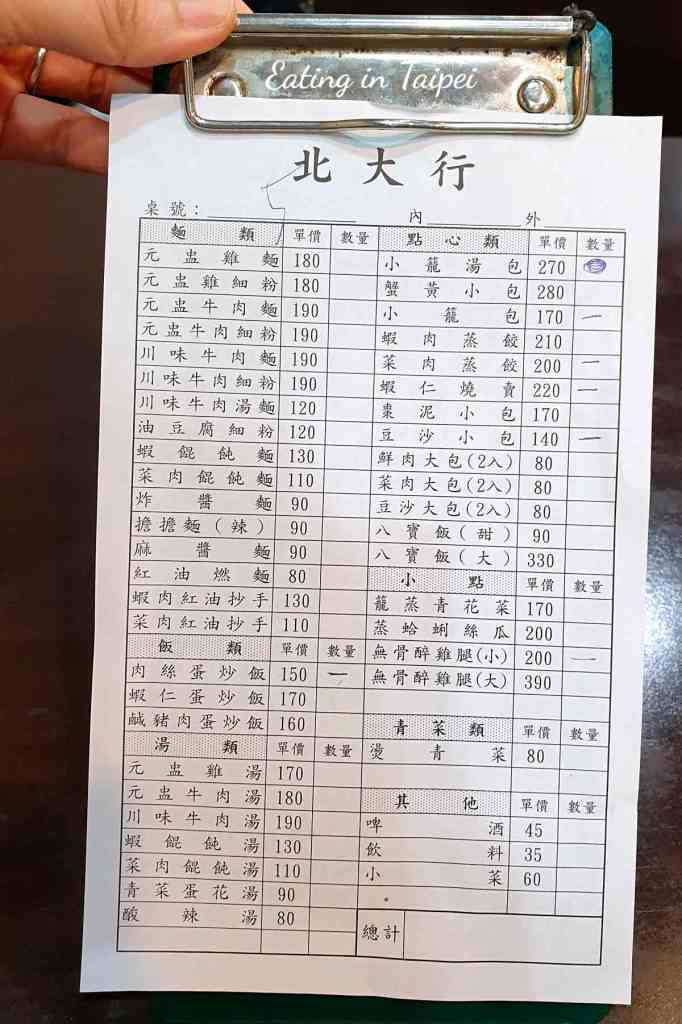 Eating in Taipei
北大行
桌號: 內 外
麵類 單價 數量
元盅雞麵 180
元盅雞細粉 180
元盅牛肉麵 190
元盅牛肉細粉 190
川味牛肉麵 190
川味牛肉細粉 190
川味牛肉湯麵 120
油豆腐細粉 120
蝦餛飩麵 130
菜肉餛飩麵 110
炸醬麵 90
擔擔麵(辣) 90
麻醬麵 90
紅油燃麵 80
蝦肉紅油抄手 130
菜肉紅油抄手 110
飯類 單價 數量
肉絲蛋炒飯 150 一
蝦仁蛋炒飯 170
鹹豬肉蛋炒飯 160
湯類 單價 數量
元盅雞湯 170
元盅牛肉湯 180
川味牛肉湯 190
蝦餛飩湯 130
菜肉餛飩湯 110
青菜蛋花湯 90
酸辣湯 80
點心類 單價 數量
小籠湯包 270
蟹黃小包 280
小籠包 170 一
蝦肉蒸餃 210
菜肉蒸餃 200 一
蝦仁燒賣 220 一
棗泥小包 170
豆沙小包 140 一
鮮肉大包(2入) 80
菜肉大包(2入) 80
豆沙大包(2入) 80
八寶飯(甜) 90
八寶飯(大) 330
小點 單價 數量
籠蒸青花菜 170
蒸蛤蜊絲瓜 200
無骨醉雞腿(小) 200 一
無骨醉雞腿(大) 390
青菜類 單價 數量
燙青菜 80
其他 單價 數量
啤酒 45
飲料 35
小菜 60
總計